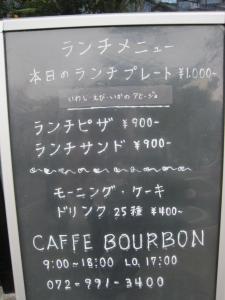 ランチメニュー
本日のランチプレート ¥1,000~
いわし・えび・いかのアヒージョ
ランチピザ ¥900~
ランチサンド ¥900~
モーニング・ケーキ
ドリンク 25種 ¥400~
CAFFE BOURBON
9:00~18:00 LO.17:00
072-991-3400